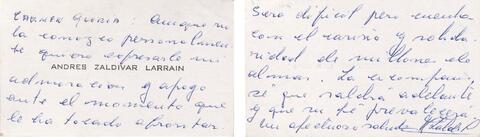 CARMEN GLORIA: Aunque no
la conozco personalmen
te quiero expresarle mi
ANDRES ZALDIVAR LARRAIN
admiración y apoyo
ante el momento que
le ha tocado afrontar.
Será difícil pero cuenta
con el cariño y solida
ridad de millones de
almas. La acompaño,
sé que saldrá adelante
y que su fé prevalecerá.
Un afectuoso saludo